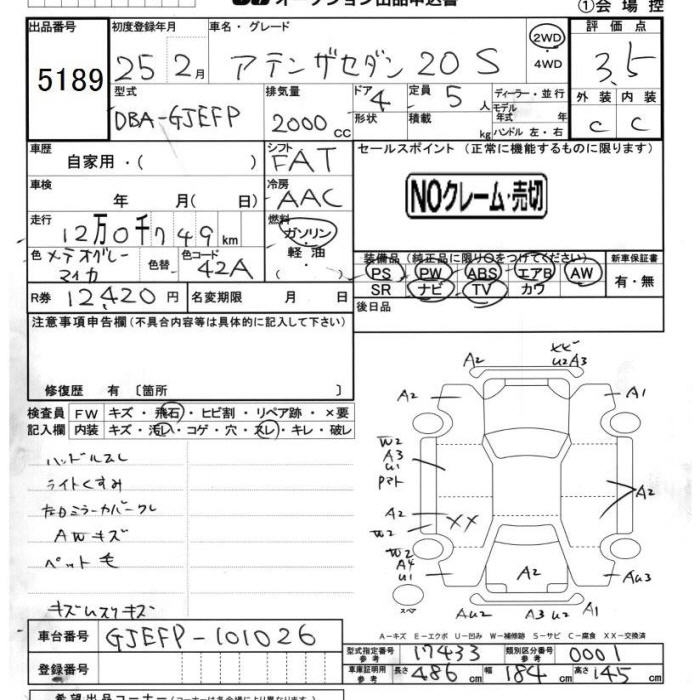 オークション出品申込書
①会場控
出品番号 初度登録年月 車名・グレード 2WD 評価点
5189 25年 2月 アテンザセダン 20S 4WD 3.5
型式 排気量 ドア 4 定員 5人 ディーラー・並行 外装 内装
DBA-GJEFP 2000cc 形状 積載 kg モデル年式 年 ハンドル 左・右 C C
車歴 自家用・( ) シフト FAT セールスポイント (正常に機能するものに限ります)
車検 年 月( 日) 冷房 AAC NOクレーム・売切
走行 12万0千749km 燃料 ガソリン・軽油
色 メテオグレーマイカ 色替 色コード 42A 装備品 (純正品に限り○をつけてください) 新車保証書
PS PW ABS エアB AW 有・無
R券 12,420円 名変期限 月 日 SR ナビ TV カワ
注意事項申告欄 (不具合内容等は具体的に記入して下さい) 後日品
修復歴 有 〔箇所 〕
検査員 FW キズ・飛石・ヒビ割・リペア跡・×要
記入欄 内装 キズ・汚れ・コゲ・穴・スレ・キレ・破レ
ハンドルスレ
ライトくすみ
左ドアミラーカバークレ
AWキズ
ペット毛
キズムスリキズ
A2 XX U2 A3
A2 A1
W2
A3
U1
A2
A2 XX
W2
W2
A4
U1
A2
AU3
スペア
AU2 A3 U2 A1
A-キズ E-エクボ U-凹み W-補修跡 S-サビ C-腐食 XX-交換済
車台番号 GJEFP-101026
型式指定番号 参考 17433 類別区分番号 参考 0001
登録番号
車庫証明用 参考 長さ 486cm 幅 184cm 高さ 145cm
希望出品コーナー